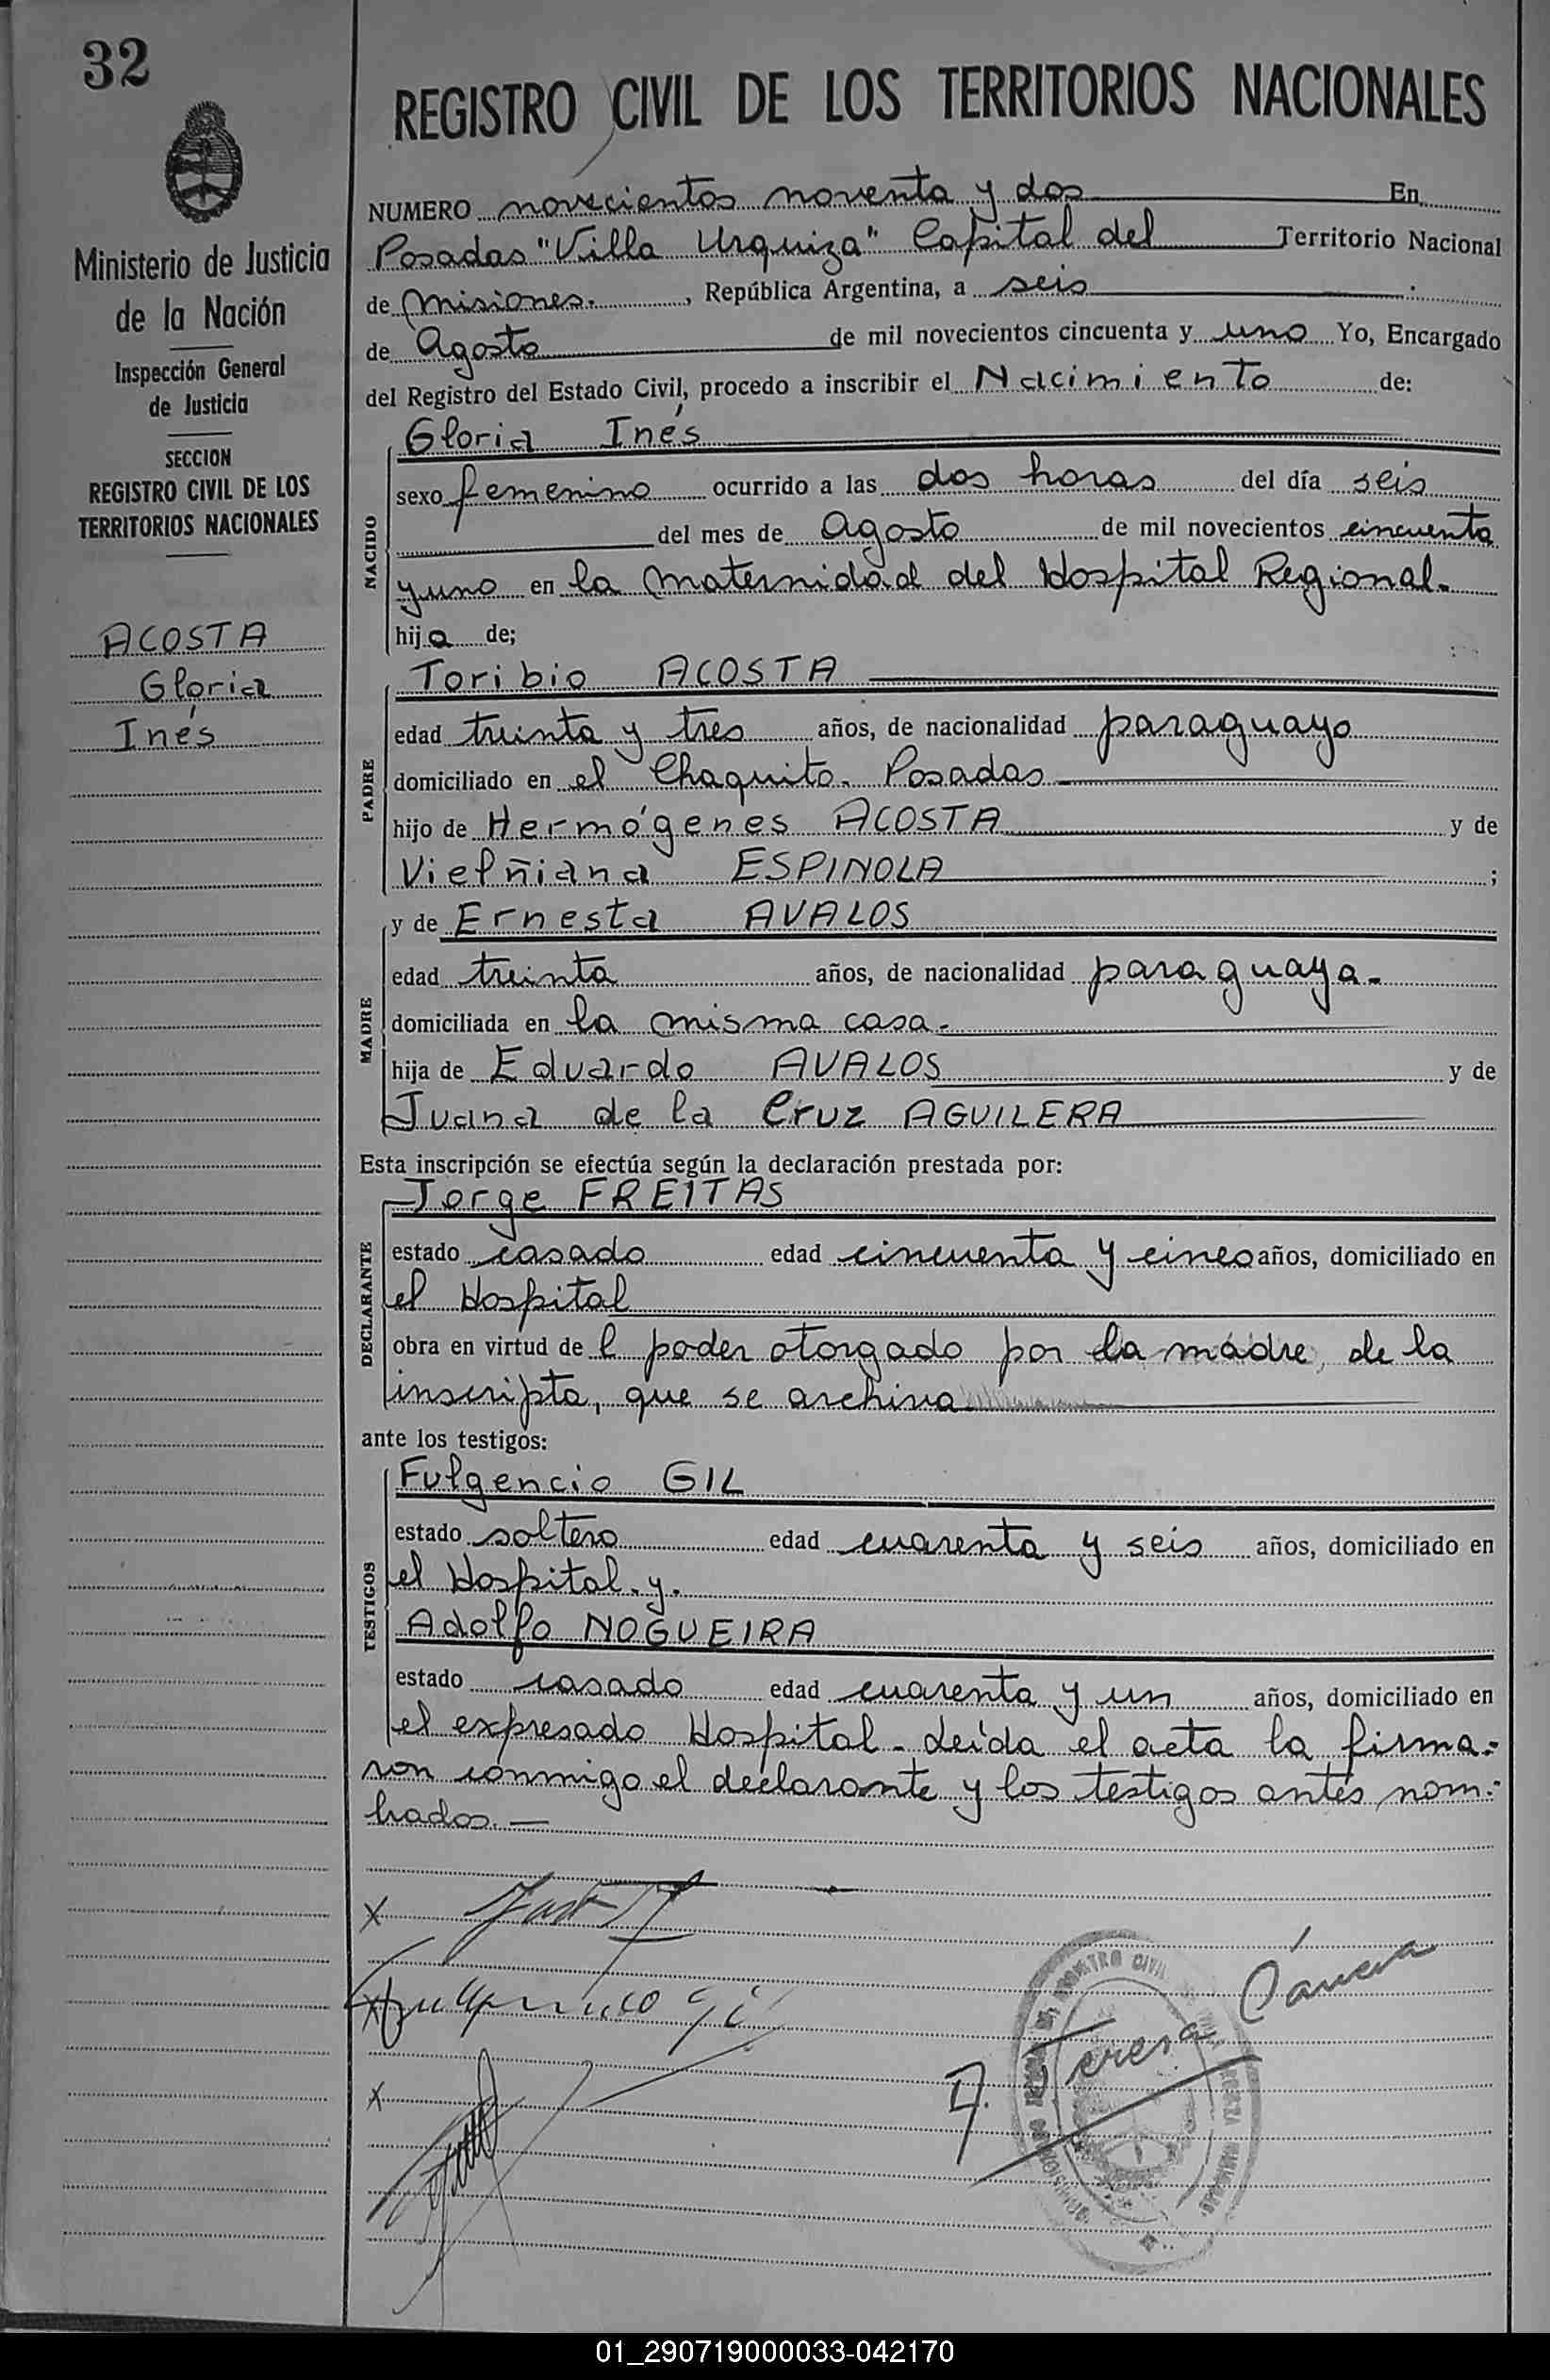 32
REGISTRO CIVIL DE LOS TERRITORIOS NACIONALES
Ministerio de Justicia
de la Nación
Inspección General
de Justicia
SECCION
REGISTRO CIVIL DE LOS
TERRITORIOS NACIONALES
ACOSTA
Gloria
Inés
NUMERO novecientos noventa y dos En
Posadas "Villa Urquiza" Capital del Territorio Nacional
de Misiones. , República Argentina, a seis
de Agosto de mil novecientos cincuenta y uno Yo, Encargado
del Registro del Estado Civil, procedo a inscribir el Nacimiento de:
NACIDO
Gloria Inés
sexo femenino ocurrido a las dos horas del día seis
del mes de Agosto de mil novecientos cincuenta
y uno en la Maternidad del Hospital Regional.
hija de;
PADRE
Toribio ACOSTA
edad treinta y tres años, de nacionalidad paraguayo
domiciliado en el Chaquito. Posadas
hijo de Hermógenes ACOSTA y de
Vielñiana ESPINOLA ;
MADRE
y de Ernesta AVALOS
edad treinta años, de nacionalidad paraguaya.
domiciliada en la misma casa.
hija de Eduardo AVALOS y de
Juana de la Cruz AGUILERA
Esta inscripción se efectúa según la declaración prestada por:
DECLARANTE
Jorge FREITAS
estado casado edad cincuenta y cinco años, domiciliado en
el Hospital
obra en virtud de l poder otorgado por la madre, de la
inscripta, que se archiva
ante los testigos:
TESTIGOS
Fulgencio GIL
estado soltero edad cuarenta y seis años, domiciliado en
el Hospital. y.
Adolfo NOGUEIRA
estado casado edad cuarenta y un años, domiciliado en
el expresado Hospital. Leída el acta la firma=
ron conmigo el declarante y los testigos antes nom=
brados. —
x
x
x
Teresa
REGISTRO CIVIL
01_290719000033-042170